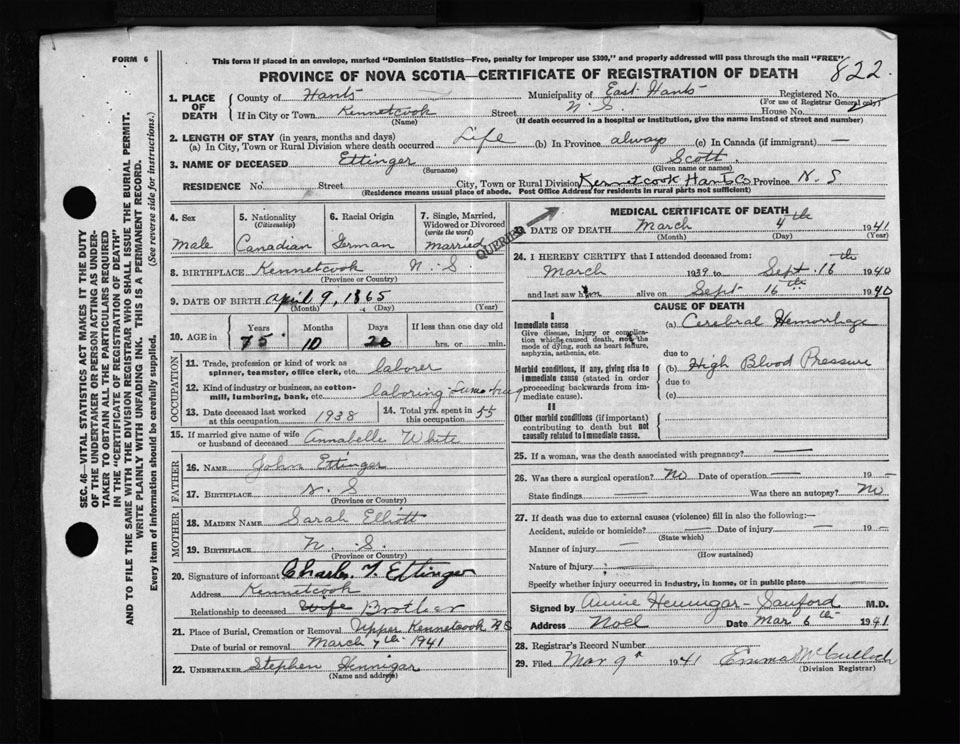 FORM 6
This form if placed in an envelope, marked "Dominion Statistics—Free, penalty for improper use $300," and properly addressed will pass through the mail "FREE"
822.
PROVINCE OF NOVA SCOTIA—CERTIFICATE OF REGISTRATION OF DEATH
SEC. 46—VITAL STATISTICS ACT MAKES IT THE DUTY
OF THE UNDERTAKER OR PERSON ACTING AS UNDER-
TAKER TO OBTAIN ALL THE PARTICULARS REQUIRED
IN THE "CERTIFICATE OF REGISTRATION OF DEATH"
AND TO FILE THE SAME WITH THE DIVISION REGISTRAR WHO SHALL ISSUE THE BURIAL PERMIT.
WRITE PLAINLY WITH UNFADING INK. THIS IS A PERMANENT RECORD.
Every item of information should be carefully supplied. (See reverse side for instructions.)
1. PLACE OF DEATH
County of Hants Municipality of East Hants Registered No.
(For use of Registrar General only)
If in City or Town Kennetcook Street N. S. House No.
(Name) (If death occurred in a hospital or institution, give the name instead of street and number)
2. LENGTH OF STAY (in years, months and days)
(a) In City, Town or Rural Division where death occurred Life (b) In Province always (c) In Canada (if immigrant) —
3. NAME OF DECEASED Ettinger Scott.
(Surname) (Given name or names)
RESIDENCE No. Street City, Town or Rural Division Kennetcook Hants Co Province N. S
(Residence means usual place of abode. Post Office Address for residents in rural parts not sufficient)
4. Sex
Male
5. Nationality
(Citizenship)
Canadian
6. Racial Origin
German
7. Single, Married, Widowed or Divorced
(write the word)
Married
QUERIED
8. BIRTHPLACE Kennetcook N. S
(Province or Country)
9. DATE OF BIRTH April 9, 1865
(Month) (Day) (Year)
10. AGE in
Years Months Days If less than one day old
75 10 26 hrs. or min.
OCCUPATION
11. Trade, profession or kind of work as
spinner, teamster, office clerk, etc. laborer
12. Kind of industry or business, as cotton-
mill, lumbering, bank, etc. laboring
13. Date deceased last worked
at this occupation 1938
14. Total yrs. spent in
this occupation 55
15. If married give name of wife
or husband of deceased Annabelle White
FATHER
16. NAME John Ettinger
17. BIRTHPLACE N. S
(Province or Country)
MOTHER
18. MAIDEN NAME Sarah Elliott
19. BIRTHPLACE N. S.
(Province or Country)
20. Signature of informant Charles T. Ettinger
Address Kennetcook
Relationship to deceased Wife Brother
21. Place of Burial, Cremation or Removal Upper Kennetcook N S
Date of burial or removal March 7th 1941
22. UNDERTAKER Stephen Hennigar
(Name and address)
MEDICAL CERTIFICATE OF DEATH
23. DATE OF DEATH March 4th 1941
(Month) (Day) (Year)
24. I HEREBY CERTIFY that I attended deceased from:
March 1939 to Sept. 16th 1940
and last saw him alive on Sept 16th 1940
CAUSE OF DEATH
I
Immediate cause
Give disease, injury or complica-
tion which caused death, not the
mode of dying, such as heart failure,
asphyxia, asthenia, etc.
(a) Cerebral Hemorrhage
due to
Morbid conditions, if any, giving rise to
immediate cause (stated in order
proceeding backwards from im-
mediate cause).
(b) High Blood Pressure
due to
(c)
II
Other morbid conditions (if important)
contributing to death but not
causally related to immediate cause.
25. If a woman, was the death associated with pregnancy? —
26. Was there a surgical operation? No Date of operation — 19 —
State findings — Was there an autopsy? No
27. If death was due to external causes (violence) fill in also the following:—
Accident, suicide or homicide? — Date of injury — 19 —
(State which)
Manner of injury —
(How sustained)
Nature of Injury —
Specify whether injury occurred in industry, in home, or in public place
Signed by Annie Hennigar-Sanford M.D.
Address Noel Date Mar 6th 1941
28. Registrar's Record Number
29. Filed Mar 9th 1941 Emma McCulloch
(Division Registrar)